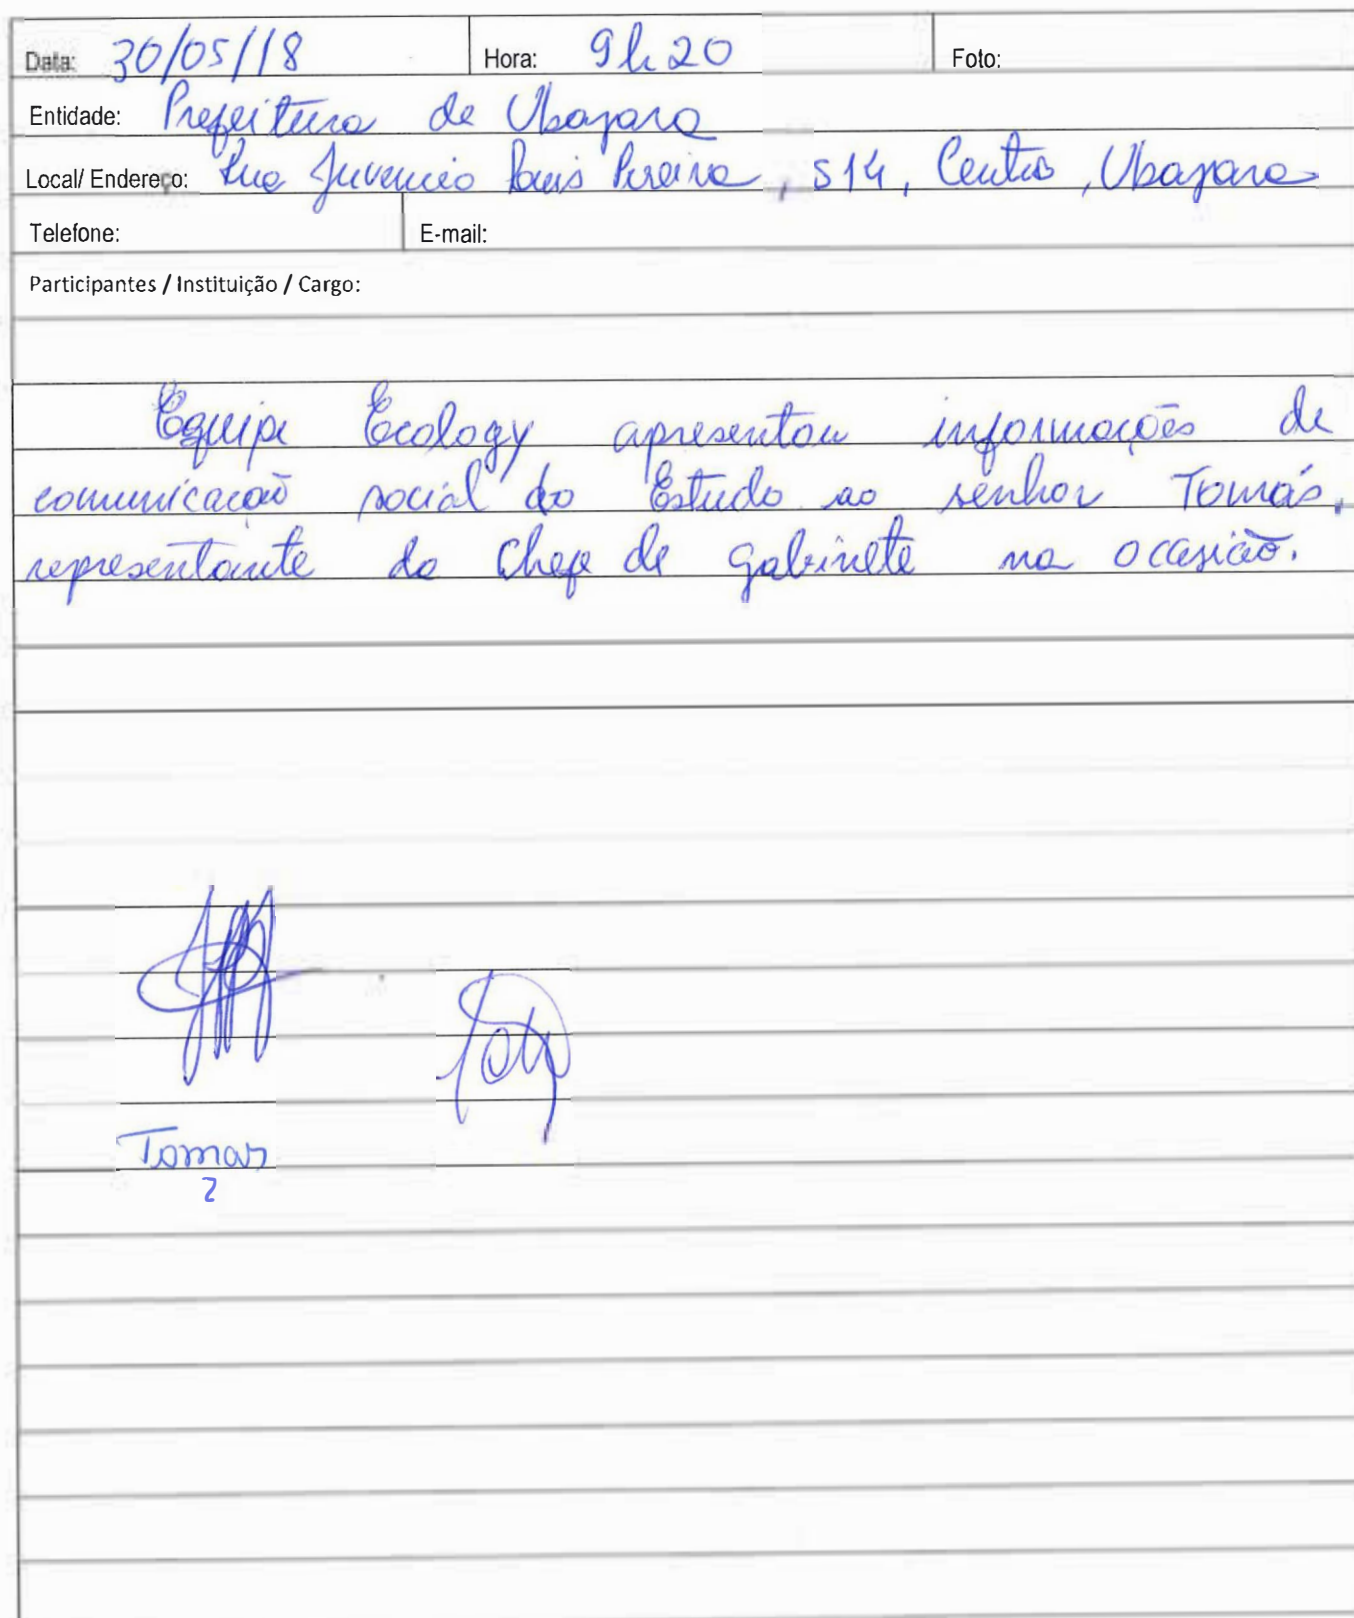 Data: 30/05/18 Hora: 9h20 Foto:
Entidade: Prefeitura de Ubajara
Local/ Endereço: Rua Juvencio Luis Pereira, 514, Centro, Ubajara
Telefone: E-mail:
Participantes / Instituição / Cargo:
Equipe Ecology apresentou informações de
comunicação social do Estudo ao senhor Tomás,
representante da Chefe de gabinete na occasião.
Tomas